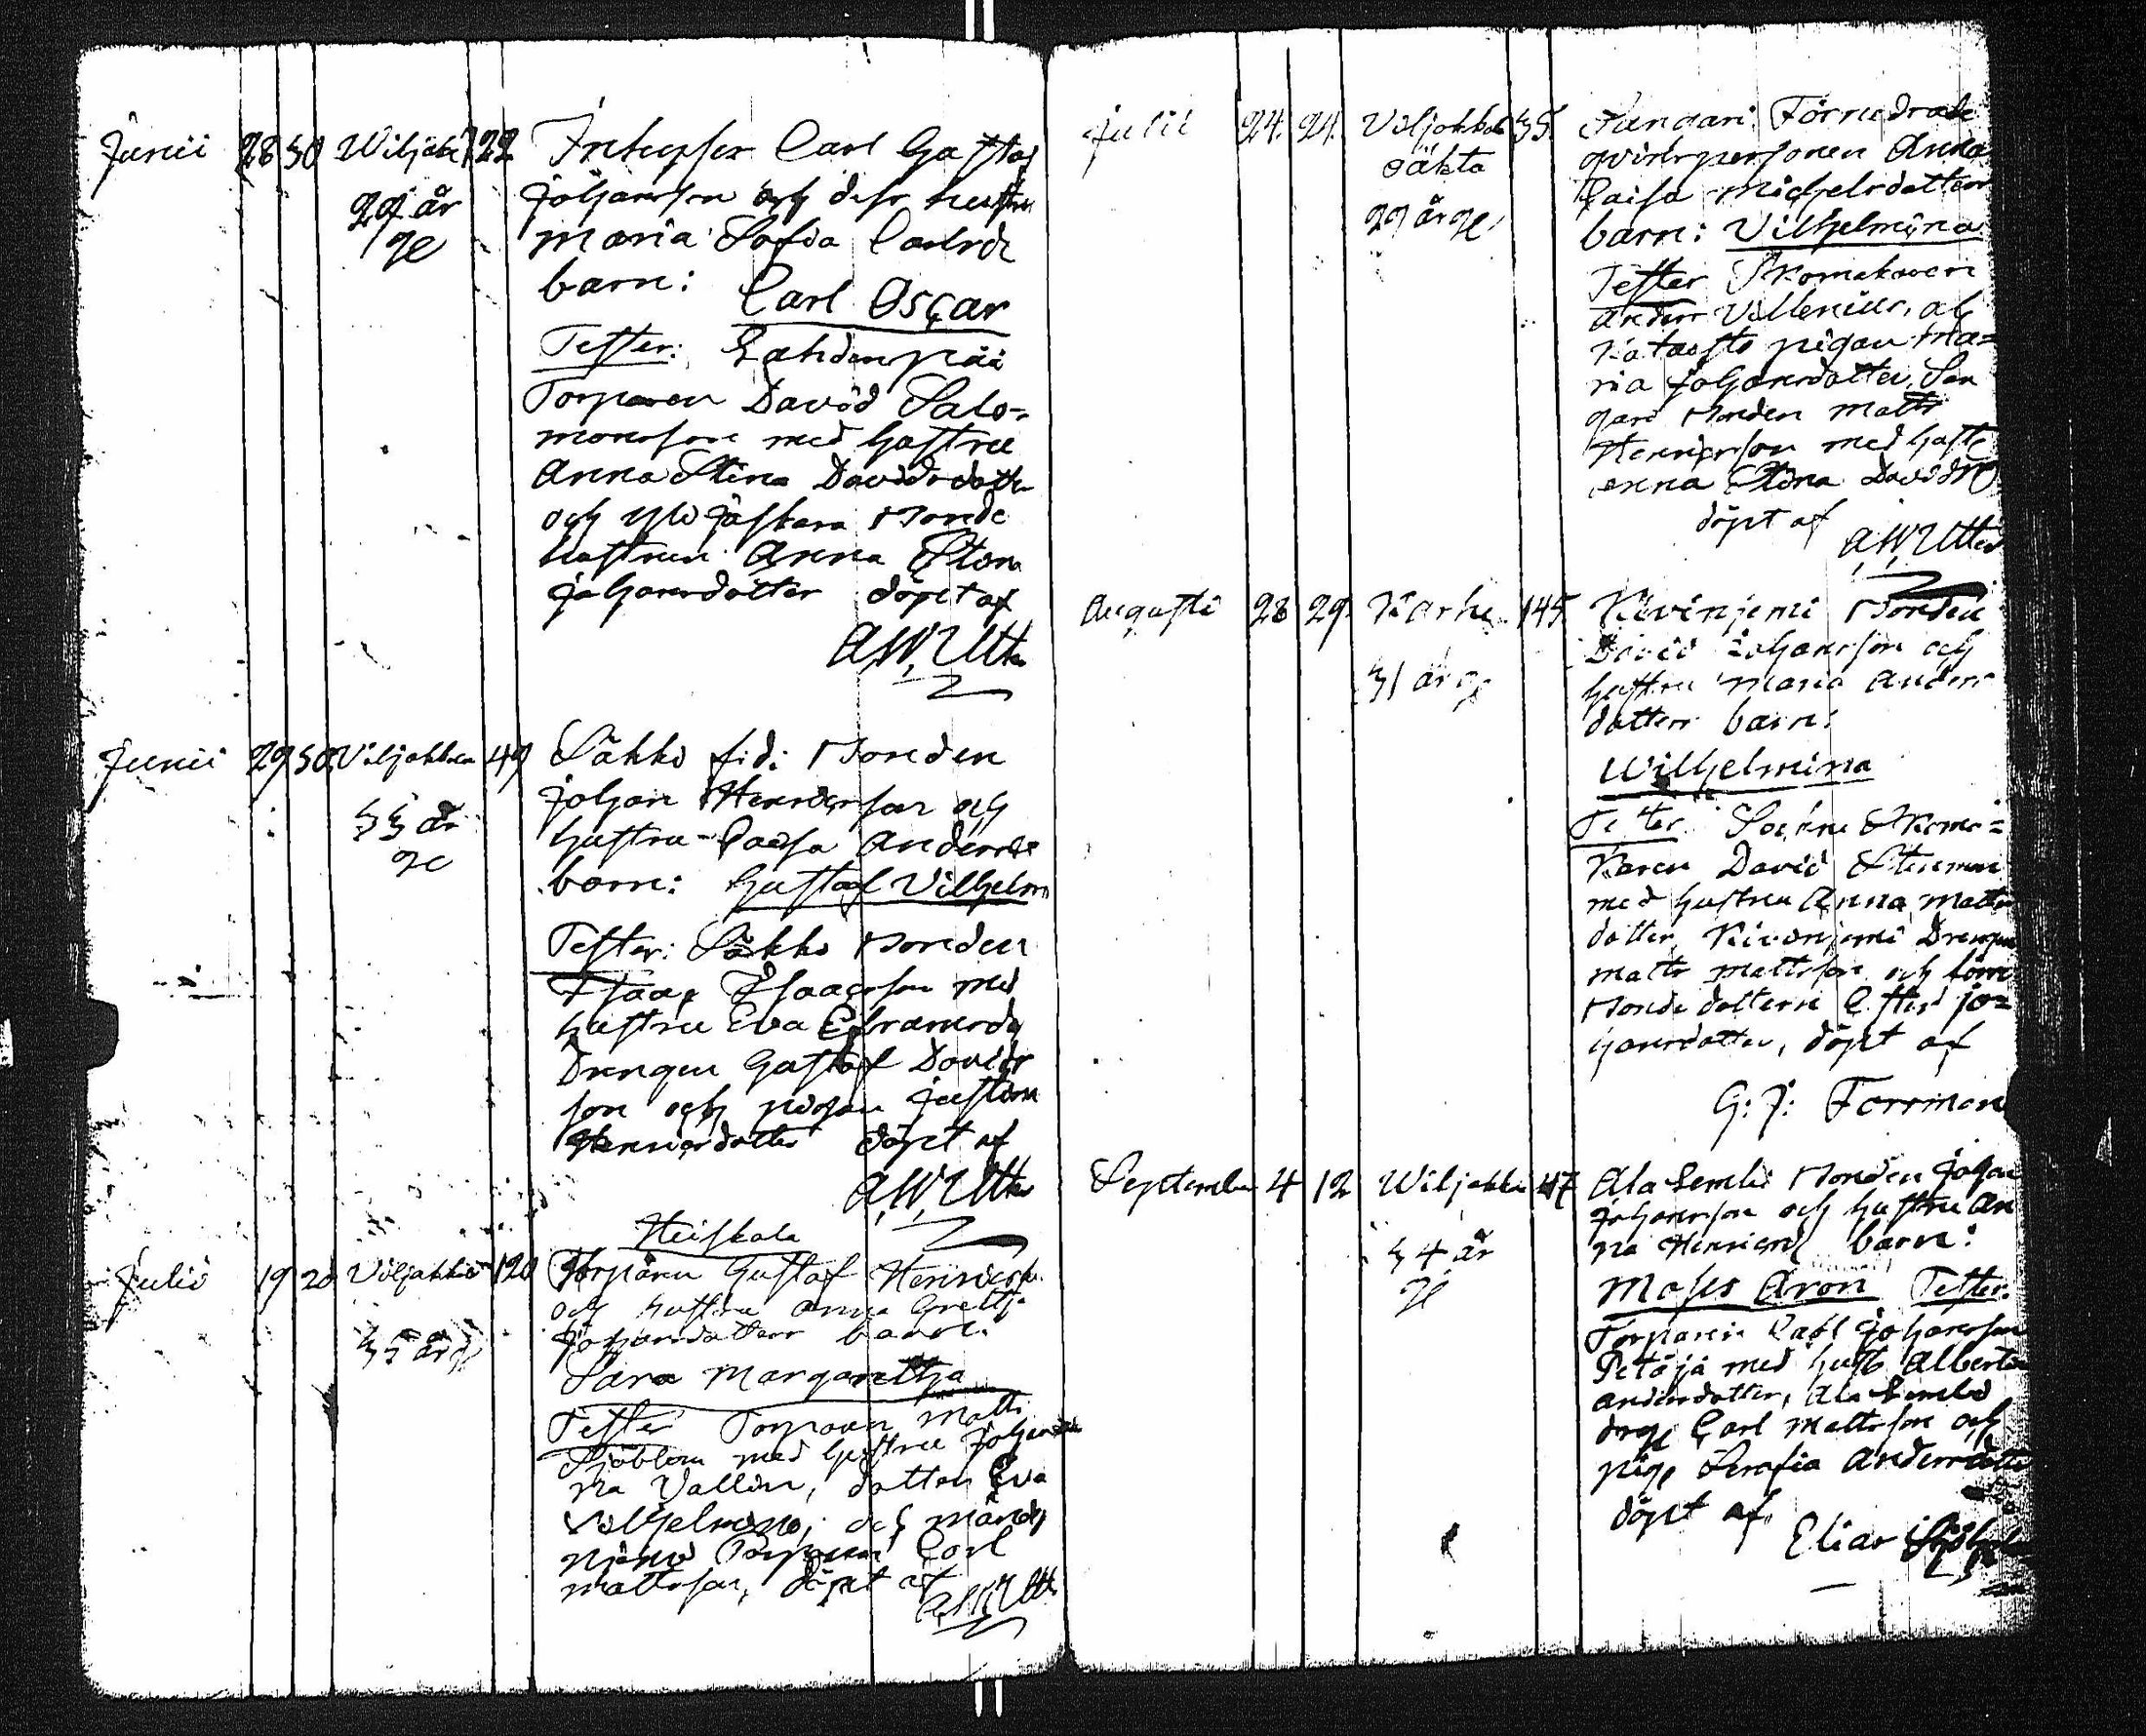 Junii 28 30 Wiljak 122 Inhyses Carl Gustaf
29 år
ge
Johansson och dess hustru
Maria Sofia Carlsd
barn: Carl Oscar
Testes: Lahdenpää
Torparen David Salo-
monsson med hustru
Anna Stina Davidsdotter
och Yli Jaskara Bonde
hustrun Anna Stina
Johansdotter döpt af
A.W. Utter
Junii 29 30 Viljakkala 49 Säkki fid: Bonden
33 år
ge
Johan Henricsson och
hustru Caisa Andersd
barn: Gustaf Vilhelm
Testes: Säkki Bonden
Isaac Isaacsson med
hustru Eva Efraimsd
Drengen Gustaf Davids
son och pigan Justina
Henricsdotter döpt af
A.W. Utter
Heiskala
Julii 19 20 Viljakkala 120 Torparen Gustaf Henricss.
35 år g
och hustru Anna Gretha
Johansdotters barn:
Sara Margaretha
Testes Torparen Matts
Sjöblom med hustru Johan
na Vallin, dottern Eva
Vilhelmina, och
Torparen Carl
Mattsson, döpt af
A.W. Utter
Julii 24. 24. Viljakkala 35.
oäkta
29 år ge
Förnedrade
qvinspersonen Anna
Caisa Michelsdotters
barn: Vilhelmina
Testes Skomakaren
Anders Villenius, och
pigan Ma-
ria Johansdotter,
Bonden Matts
Henricsson med hust
Anna Stina Davidsd
döpt af
A.W. Utter
Augusti 28 29. Karhe 145 Kivinjemi Bonden
31 år g
David Johansson och
hustru Maria Anders
dotters barn:
Wilhelmina
Testes Skoma-
karen David Stenman
med hustru Anna Matts
dotter, Kivinjemi Drengen
Matts Mattsson och
Bonde dottern Jo-
hansdotter, döpt af
G: J: Forsman
September 4 12 Wiljakkala 47 Ala Sembi Bonden Johan
34 år
ge
Johansson och hustru An
na Henricsd barn:
Moses Aron Testes:
Torparen Carl Johansson
Petäjä med hust Albertina
Andersdotter, Ala Sembi
drge Carl Mattsson och
pig. Serafia Andersdotter
döpt af,
Elias